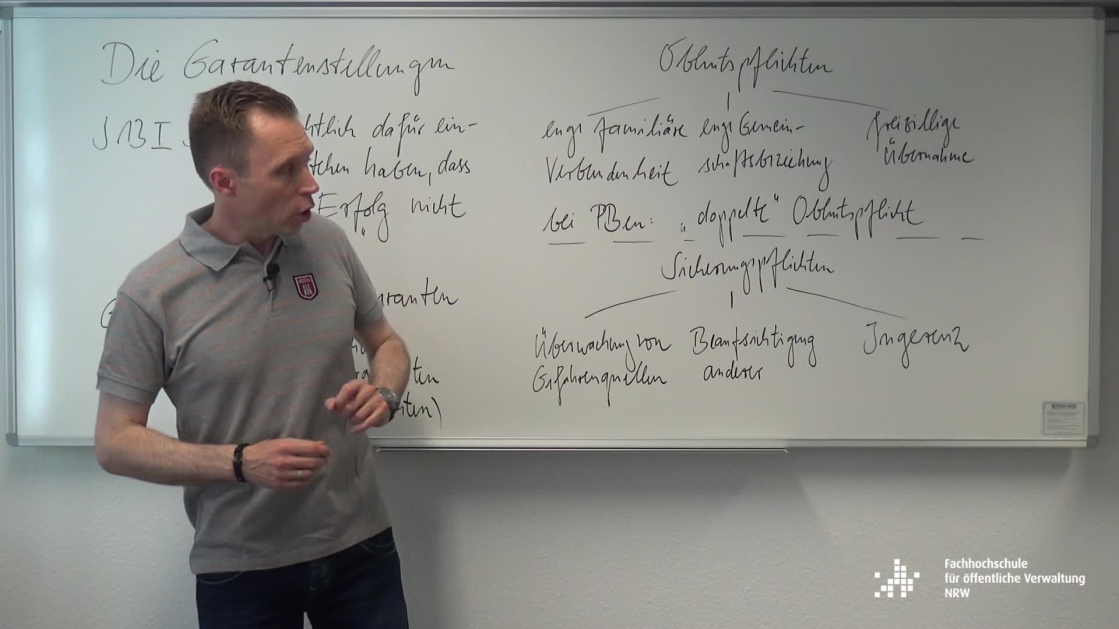 Die Garantenstellungen
§ 13 I
htlich dafür ein-
stehen haben, dass
"Erfolg nicht
aranten
ten
iten)
Obhutspflichten
enge familiäre
Verbundenheit
enge Gemein-
schaftsbeziehung
freiwillige
Übernahme
bei PBen: „doppelte" Obhutspflicht
Sicherungspflichten
Überwachung von
Gefahrenquellen
Beaufsichtigung
anderer
Ingerenz
Fachhochschule
für öffentliche Verwaltung
NRW